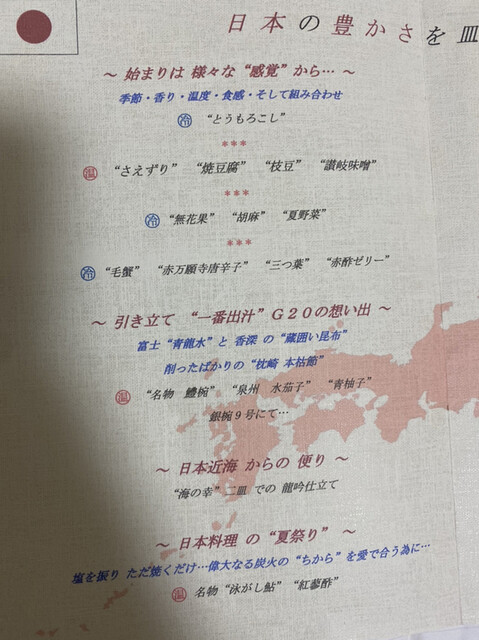 日本の豊かさを皿
～ 始まりは 様々な “感覚” から… ～
季節・香り・温度・食感・そして組み合わせ
冷 “とうもろこし”
***
温 “さえずり” “焼豆腐” “枝豆” “讃岐味噌”
***
冷 “無花果” “胡麻” “夏野菜”
***
冷 “毛蟹” “赤万願寺唐辛子” “三つ葉” “赤酢ゼリー”
～ 引き立て “一番出汁” Ｇ２０の想い出 ～
富士 “青龍水” と 香深 の “蔵囲い昆布”
削ったばかりの “枕崎 本枯節”
温 “名物 鱧椀” “泉州 水茄子” “青柚子”
銀椀９号にて…
～ 日本近海 からの 便り ～
“海の幸” 二皿 での 龍吟仕立て
～ 日本料理 の “夏祭り” ～
塩を振り ただ焼くだけ…偉大なる炭火の “ちから” を愛で合う為に…
温 名物 “泳がし鮎” “紅蓼酢”